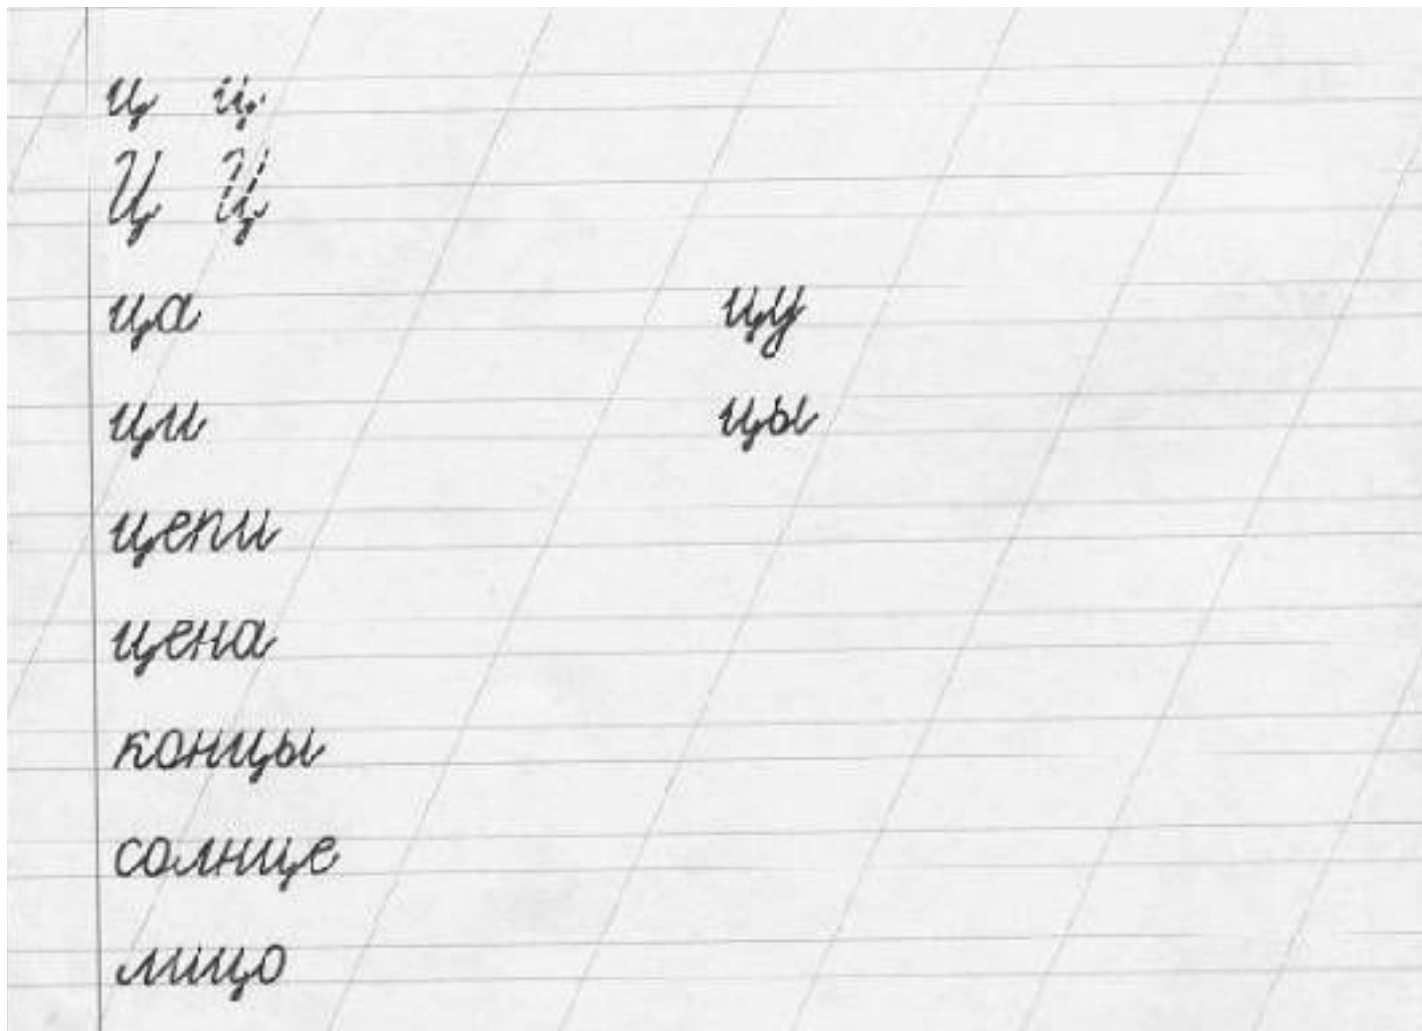 ц ц
Ц Ц
ца цу
ци цы
цепи
цена
концы
солнце
лицо